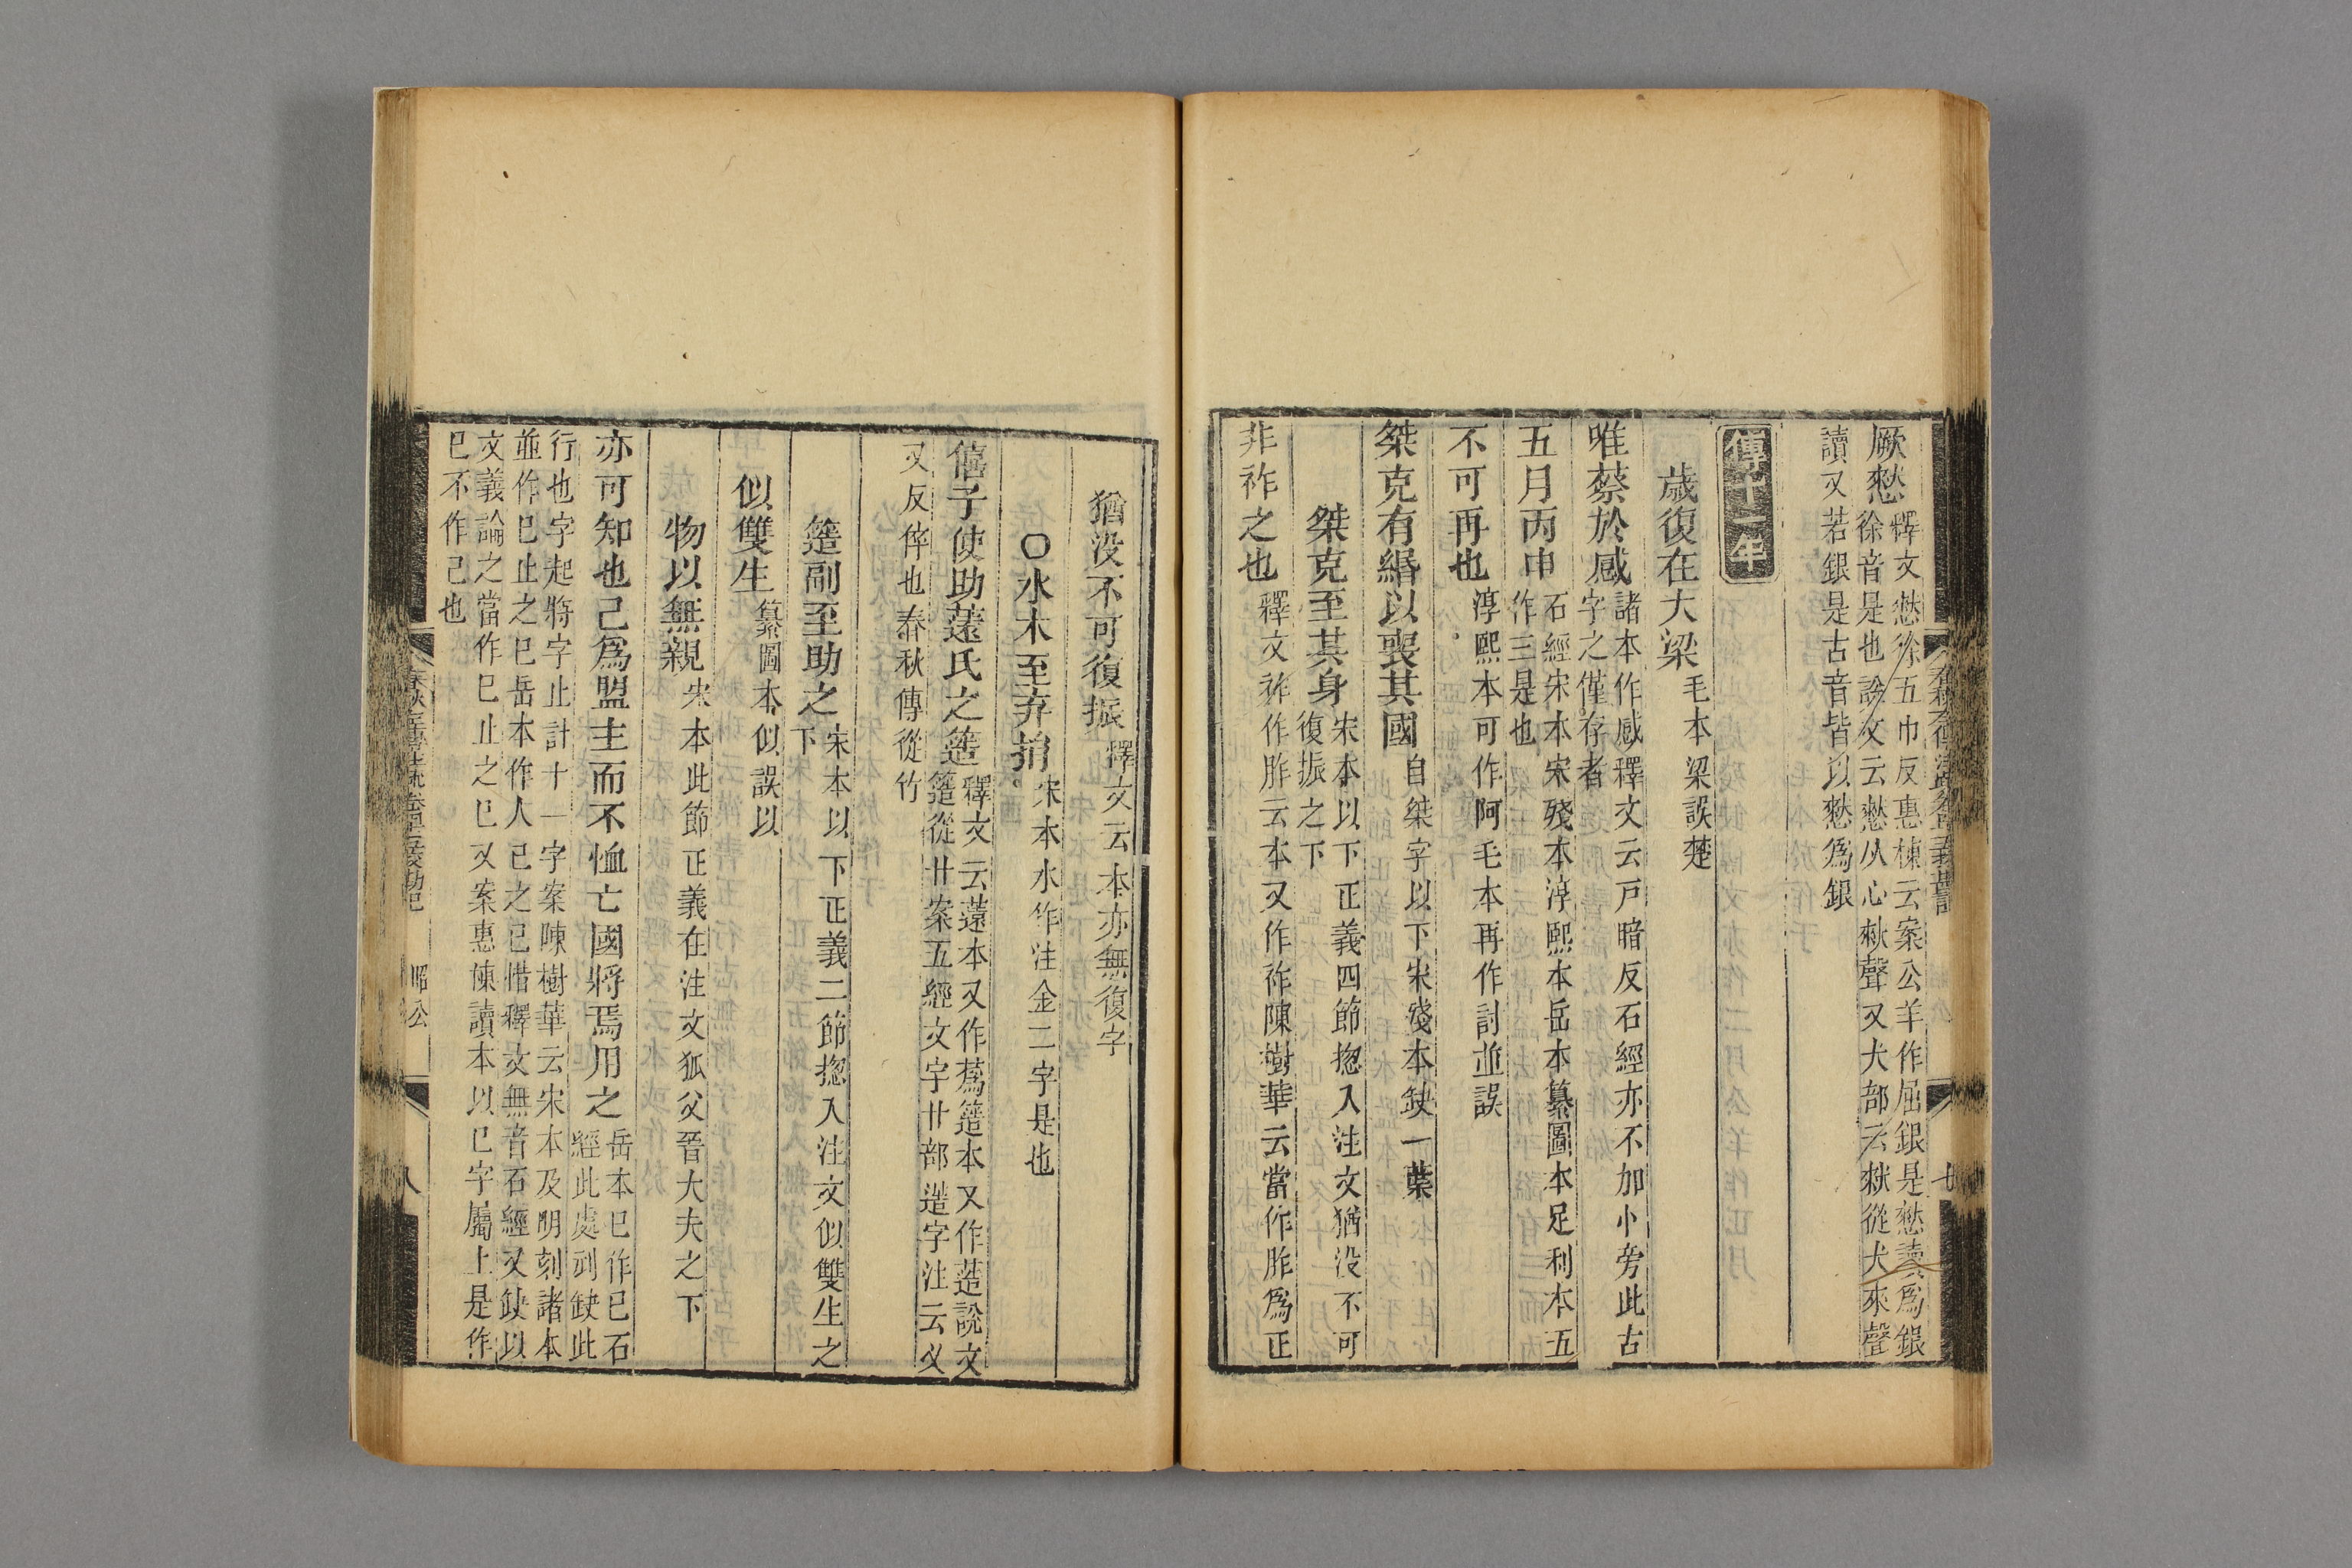 厥憖釋文憖徐五巾反惠棟云案公羊作屈銀是憖讀爲銀
徐音是也說文云憖从心猌聲又犬部云猌從犬來聲
讀又若銀是古音皆以憖爲銀
傳十一年
歲復在大梁毛本梁誤楚
唯蔡於感諸本作感釋文云戸暗反石經亦不加小旁此古
字之僅存者
五月丙申石經宋本宋殘本淳熙本岳本纂圖本足利本五
作三是也
不可再也淳熙本可作阿毛本再作討並誤
桀克有緡以喪其國自桀字以下宋殘本缺一葉
桀克至其身宋本以下正義四節揔入注文猶没不可
復振之下
非祚之也釋文祚作胙云本又作祚陳樹華云當作胙爲正
猶没不可復振釋文云本亦無復字
○水木至弃捐宋本水作注金二字是也
僖子使助薳氏之簉釋文云薳本又作蔿簉本又作莡說文
簉從艸案五經文字艸部莡字注云乂
又反倅也春秋傳從竹
簉副至助之宋本以下正義二節揔入注文似雙生之
下
似雙生纂圖本似誤以
物以無親宋本此節正義在注文狐父晉大夫之下
亦可知也己爲盟主而不恤亡國將焉用之岳本已作已石
經此處刓缺此
行也字起將字止計十一字案陳樹華云宋本及明刻諸本
並作巳止之巳岳本作人己之己惜釋文無音石經又缺以
文義論之當作巳止之巳又案惠棟讀本以巳字屬上是作
巳不作己也
昭公
八